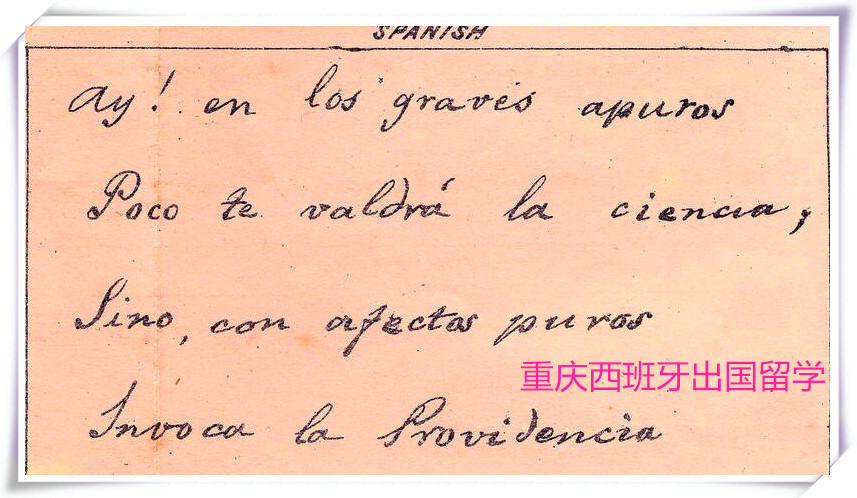 SPANISH
Ay! en los graves apuros
Poco te valdrá la ciencia,
Sino, con afectos puros
重庆西班牙出国留学
Invoca la Providencia